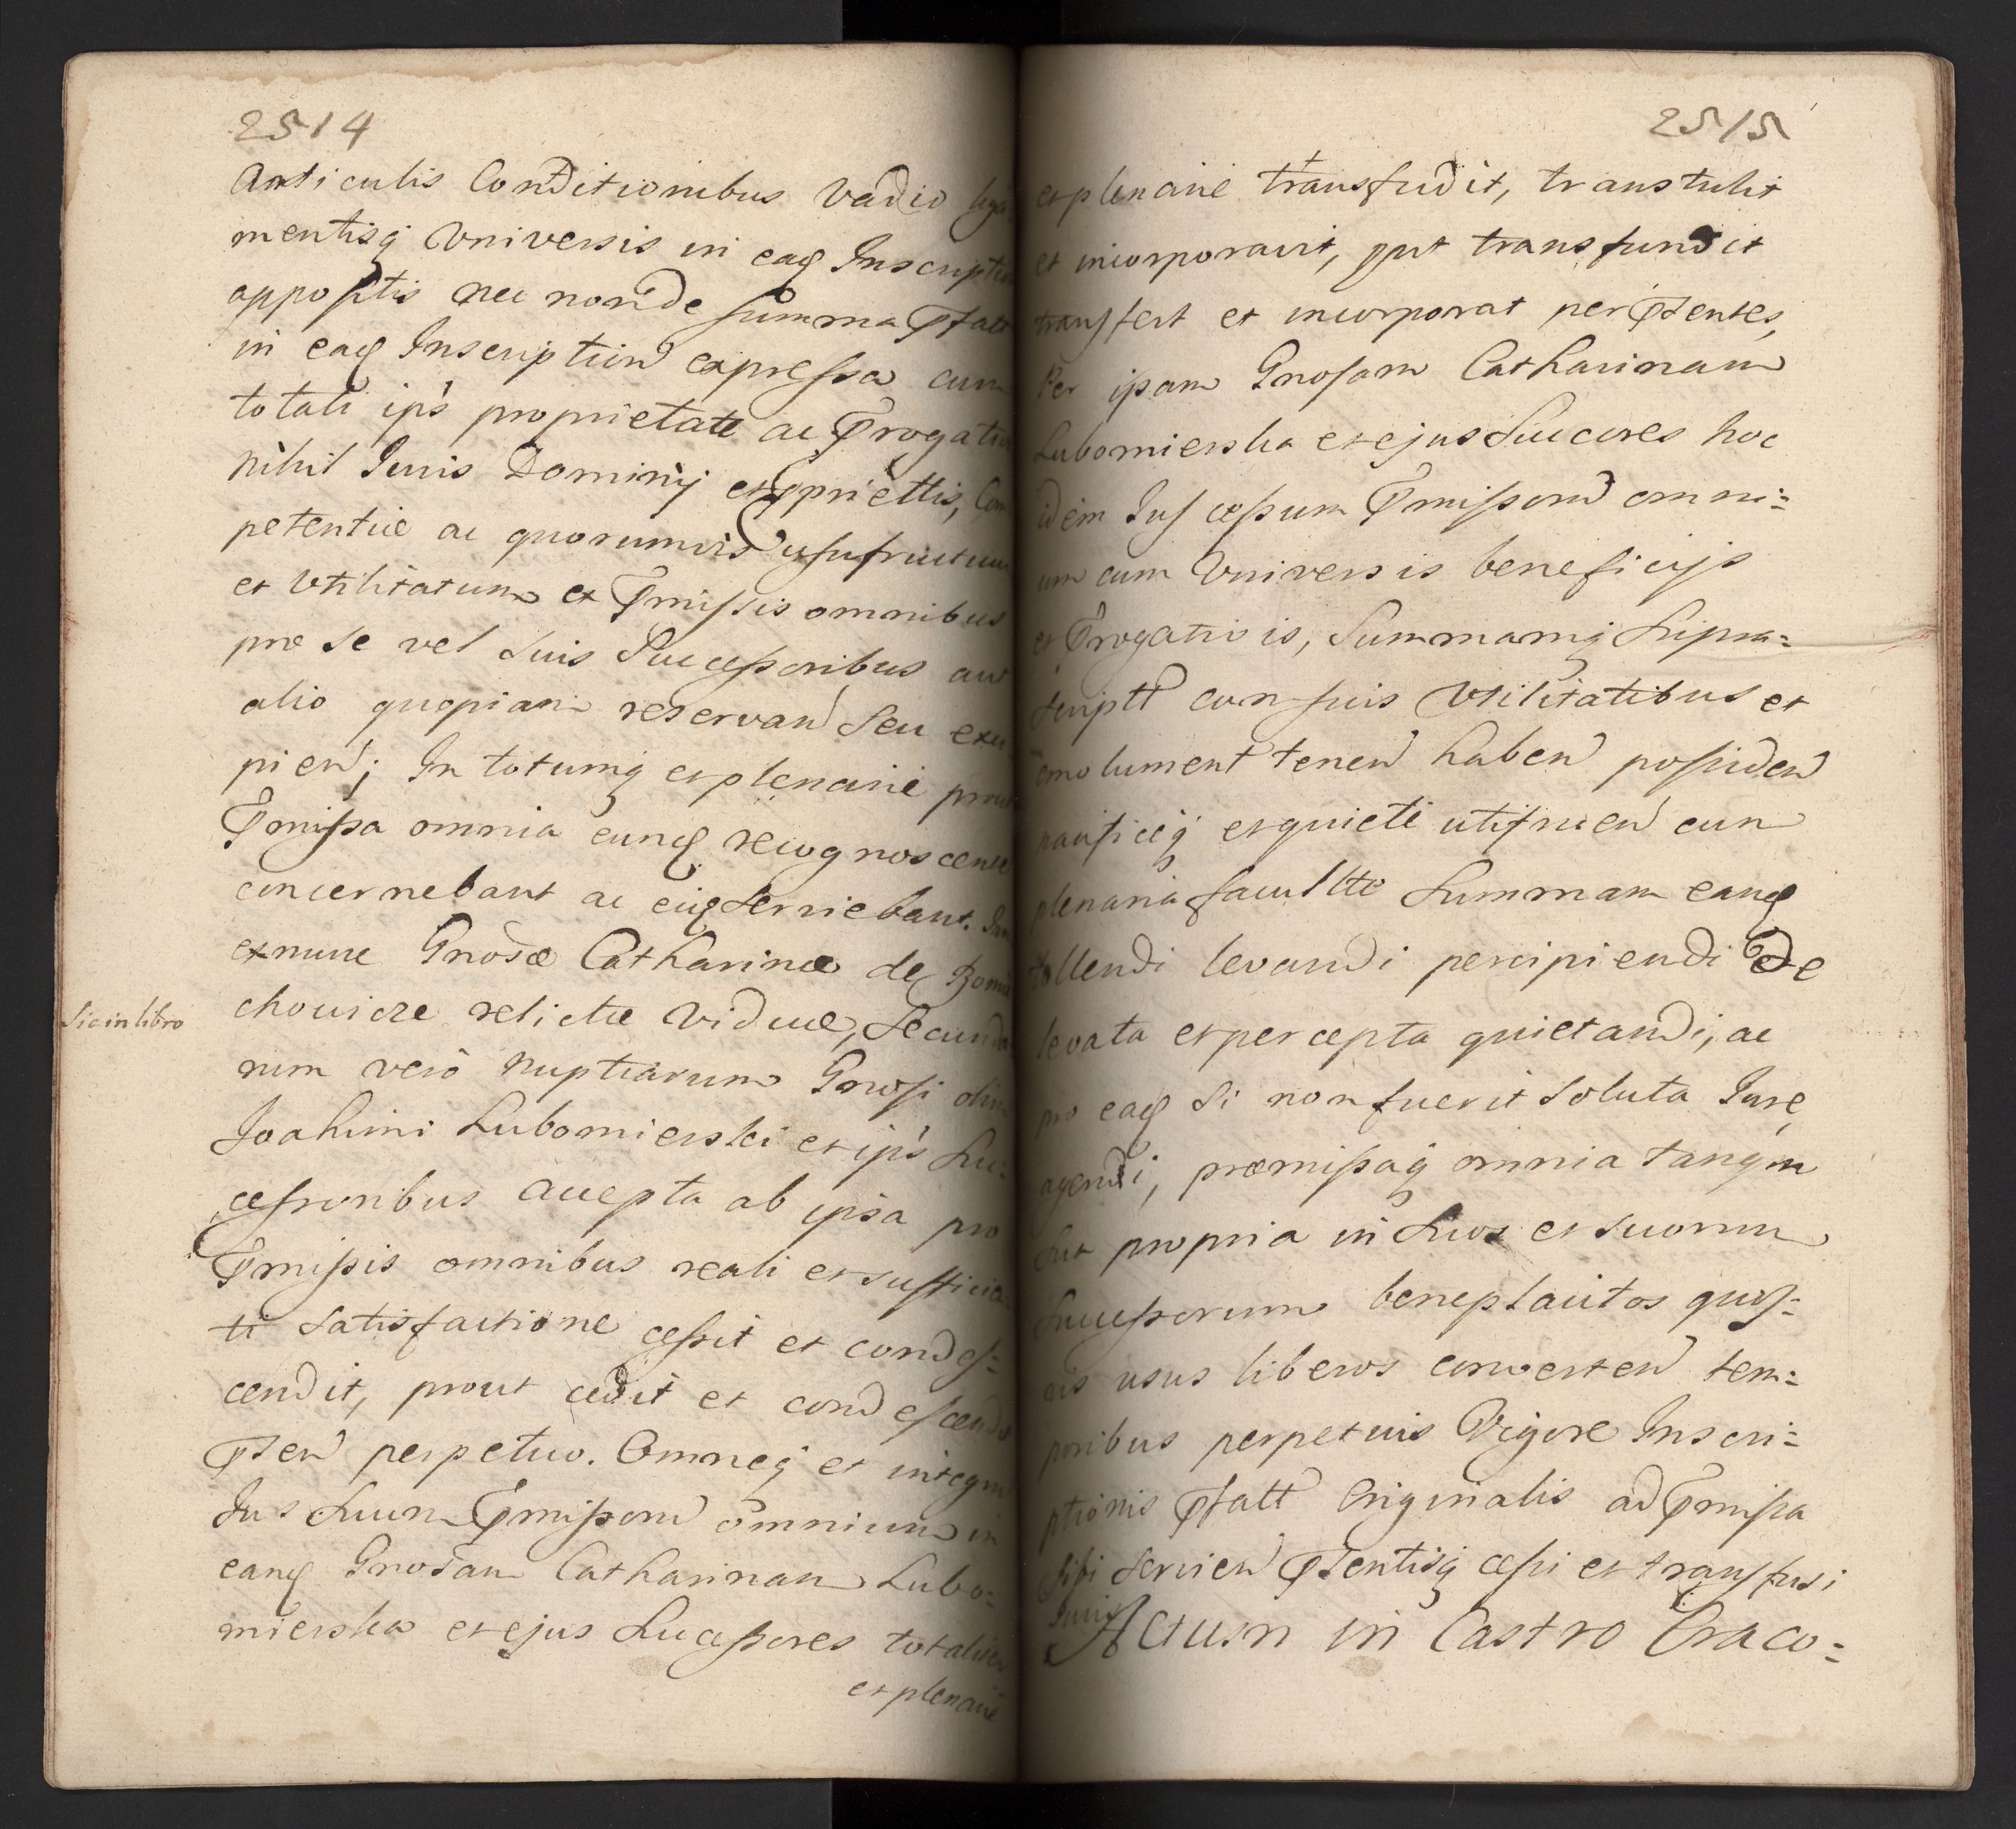 2514
Articulis Conditionibus Vadio liga
mentisq Universis in eaq Inscriptio
appositis nec non de summa Pfatt
in eaq Inscription expressa cum
totali ips proprietate ac Prrogativ
nihil Juris Dominij et pprietttis, Com
petentiæ ac quorumvis usufructuum
et Utilitatum ex Pmissis omnibus
pro se vel suis Successoribus aut
alio quopiam reservand seu exci
piend; In totumq et plenarie prout
Pmissa omnia eunq recognoscente
concernebant ac eiq serviebant. Jam
exnunc Gnosæ Catharinæ de
chowicze relictæ Viduæ, Secunda
rum vero Nuptiarum Gnosi olim
Sic in libro
Joahimi Lubomierski et ips Suc
cessoribus accepta ab ipsa pro
Pmissis omnibus reali et sufficien
ti satisfactione cessit et condes=
cendit, prout cedit et condescendit
Psen perpetuo. Omneq et integrum
Jus Suum Pmissoru omnium in
eanq Gnosam Catharinam Lubo=
mierska et ejus Successores totaliter
et plenarie
2515
et plenarie transfudit, transtulit
et incorporavit, put transfundit
transfert et incorporat per Psentes,
Per ipsam Gnosam Catharinam
Lubomierska et ejus Succores hoc
idem Jus cessum Pmissoru omni=
um cum Universis beneficijs
et Prrogativis, Summamq Supra=
scriptt cum suis Utilitatibus et
emolument tenen haben possiden
pacificeq et quiete utifruen cum
plenaria facultte Summam eanq
tollendi levandi percipiendi De
levata et percepta quietandi, ac
pro eaq si non fuerit soluta Jure
agendi, præmissaq omnia tanqm
sua propria in Suos et suorum
Successorum beneplacitos quos=
vis usus liberos converten tem=
poribus perpetuis Vigore Inscri=
ptionis Pfatt Originalis ad Pmissa
sibi servien Psentisq cessi et transfusi
Juris
Actum in Castro Craco=